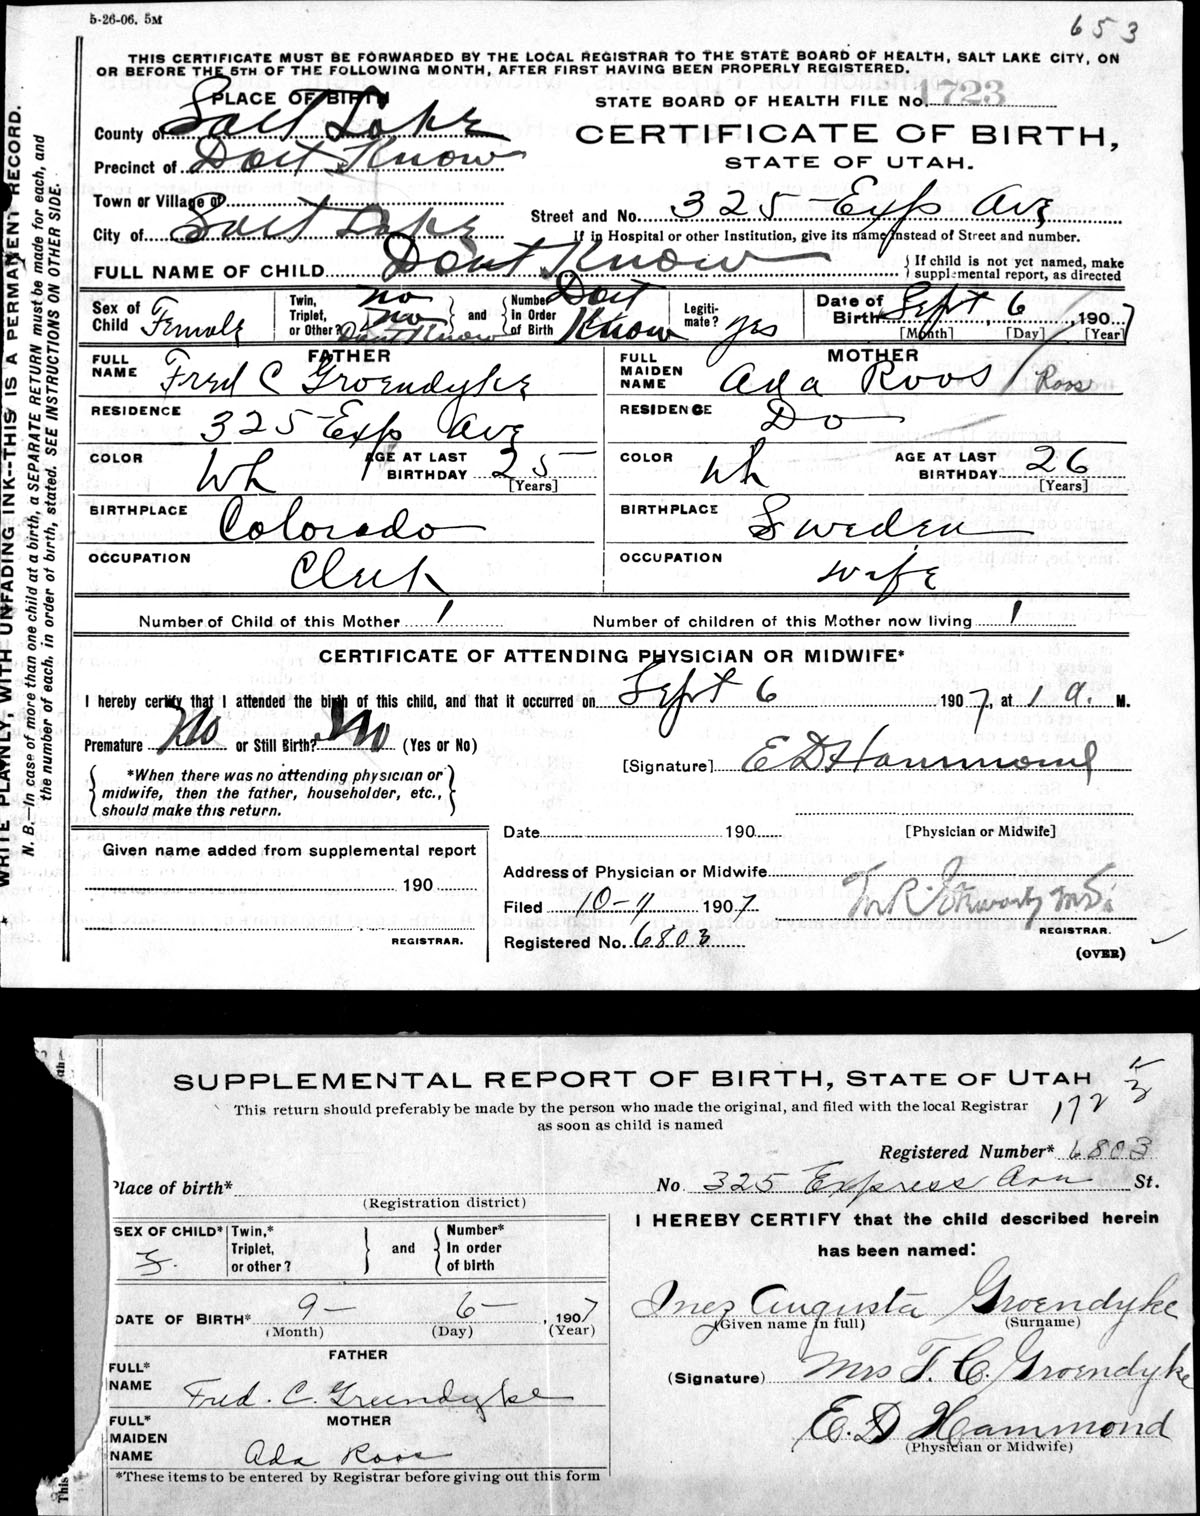 5-26-06. 5M
653
THIS CERTIFICATE MUST BE FORWARDED BY THE LOCAL REGISTRAR TO THE STATE BOARD OF HEALTH, SALT LAKE CITY, ON
OR BEFORE THE 5TH OF THE FOLLOWING MONTH, AFTER FIRST HAVING BEEN PROPERLY REGISTERED.
WRITE PLAINLY, WITH UNFADING INK--THIS IS A PERMANENT RECORD.
N. B.—In case of more than one child at a birth, a SEPARATE RETURN must be made for each, and
the number of each, in order of birth, stated. SEE INSTRUCTIONS ON OTHER SIDE.
PLACE OF BIRTH
County of Salt Lake
Precinct of Dont Know
Town or Village of
City of Salt Lake
STATE BOARD OF HEALTH FILE No. 1723
CERTIFICATE OF BIRTH,
STATE OF UTAH.
Street and No. 325 Exp Ave
If in Hospital or other Institution, give its name instead of Street and number.
FULL NAME OF CHILD Dont Know
If child is not yet named, make
supplemental report, as directed
Sex of Child Female
Twin, Triplet, or Other? no no Dont Know
and
Number In Order of Birth Dont Know
Legiti- mate? yes
Date of Birth Sept 6, 1907
[Month] [Day] [Year]
FATHER
FULL NAME Fred C Groendyke
RESIDENCE 325 Exp Ave
COLOR Wh AGE AT LAST BIRTHDAY 25 [Years]
BIRTHPLACE Colorado
OCCUPATION Clerk
MOTHER
FULL MAIDEN NAME Ada Roos / Roos
RESIDENCE Do
COLOR Wh AGE AT LAST BIRTHDAY 26 [Years]
BIRTHPLACE Sweden
OCCUPATION wife
Number of Child of this Mother 1 Number of children of this Mother now living 1
CERTIFICATE OF ATTENDING PHYSICIAN OR MIDWIFE*
I hereby certify that I attended the birth of this child, and that it occurred on Sept 6 1907, at 1 a. M.
Premature No or Still Birth? No (Yes or No)
*When there was no attending physician or
midwife, then the father, householder, etc.,
should make this return.
[Signature] E D Hammond
Date 190
[Physician or Midwife]
Given name added from supplemental report
190
REGISTRAR.
Address of Physician or Midwife
Filed 10-4 1907
REGISTRAR.
Registered No. 6803
(OVER)
SUPPLEMENTAL REPORT OF BIRTH, STATE OF UTAH
This return should preferably be made by the person who made the original, and filed with the local Registrar
as soon as child is named
172 3
Registered Number* 6803
Place of birth*
(Registration district)
No 325 Express Ave St.
SEX OF CHILD* F.
Twin,* Triplet, or other?
and
Number* In order of birth
I HEREBY CERTIFY that the child described herein
has been named:
Inez Augusta Groendyke
(Given name in full) (Surname)
DATE OF BIRTH* 9- 6- , 1907
(Month) (Day) (Year)
FATHER
FULL* NAME Fred. C. Greendyke
MOTHER
FULL* MAIDEN NAME Ada Roos
(Signature) Mrs F. C. Groendyke
E. D Hammond
(Physician or Midwife)
*These items to be entered by Registrar before giving out this form
This